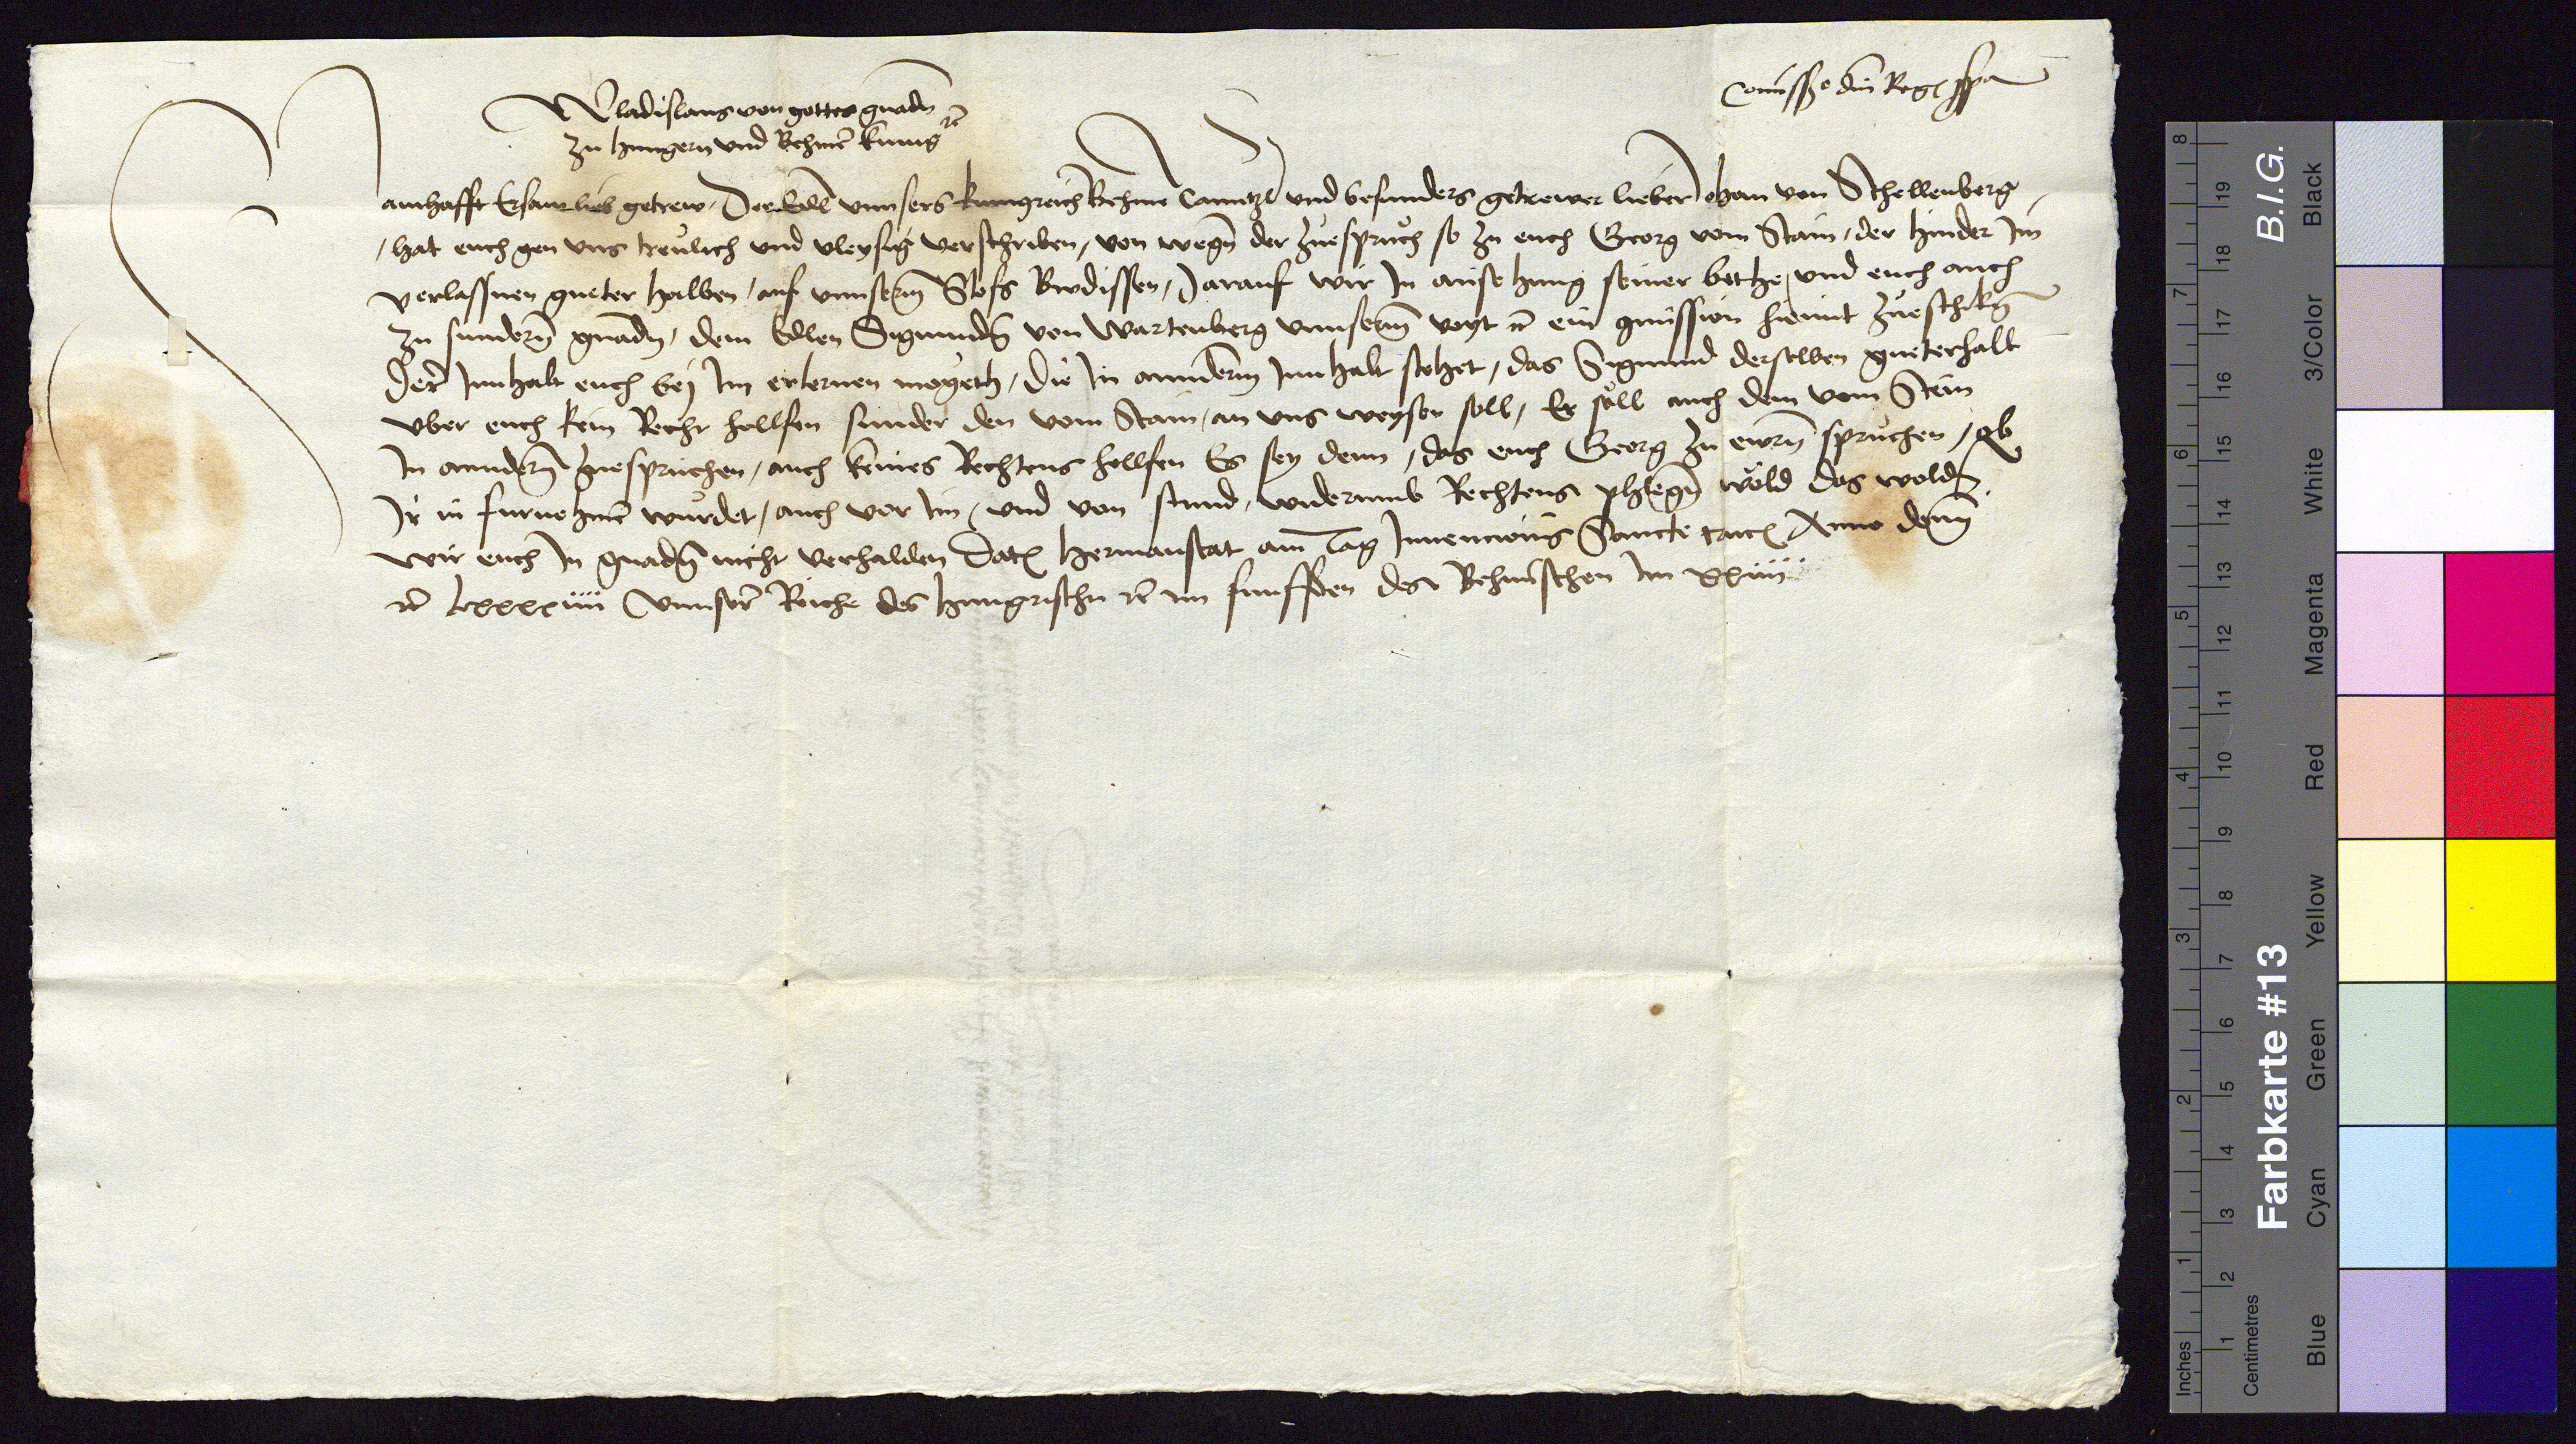 Comissio dni Regis ppa
Wladislaus von gottes gnadn
zu hungern und Behmē kunig rc
Namhafft Ersam lieb getrew Der Edl unnsers kunigreich Behmē Canntzl und besunders getrewer lieber Johan von Schellenberg
/ hat euch gen uns treulich und vleysig verschriben / von wegn̄ der zuespruch so zu euch Georg vom Stain / der hinder Im
verlassnen gueter halben / auf unnserm̄ Slofs Budissen / Darauf wir In ansehung seiner bethe / und euch auch
zu sundern̄ gnadn / dem Edlen Sigmundn̄ von Wartenberg unnserm̄ voyt rc ein comission hiemit zueschikn̄
Der̄ Innhalt euch bey Im erlernen mogeth / Die In anndern̄ Innhalt stehet / das Sigmund derselben gueterhalb
uber euch kein Recht hellfen sunder den vom Stain / an uns weysen soll / Er soll auch dem vom Stein
In anndern̄ zuespruchen / auch keines Rechtens hellfen Es sey denn / das euch Georg zu ewrn̄ spruchen / ob
Ir in furnehmē wurdet / auch vor Im / und von stund / widerumb Rechtens phlegn̄ wold das woldn
wir euch In gnadn̄ nicht verhalden Datx hermanstat am Tag Invencionis Sancte crucx Anno domī
rc lxxxxiiii Unnserē Reiche des hungrischn rc im funfften des Behmischen Im xxiiii